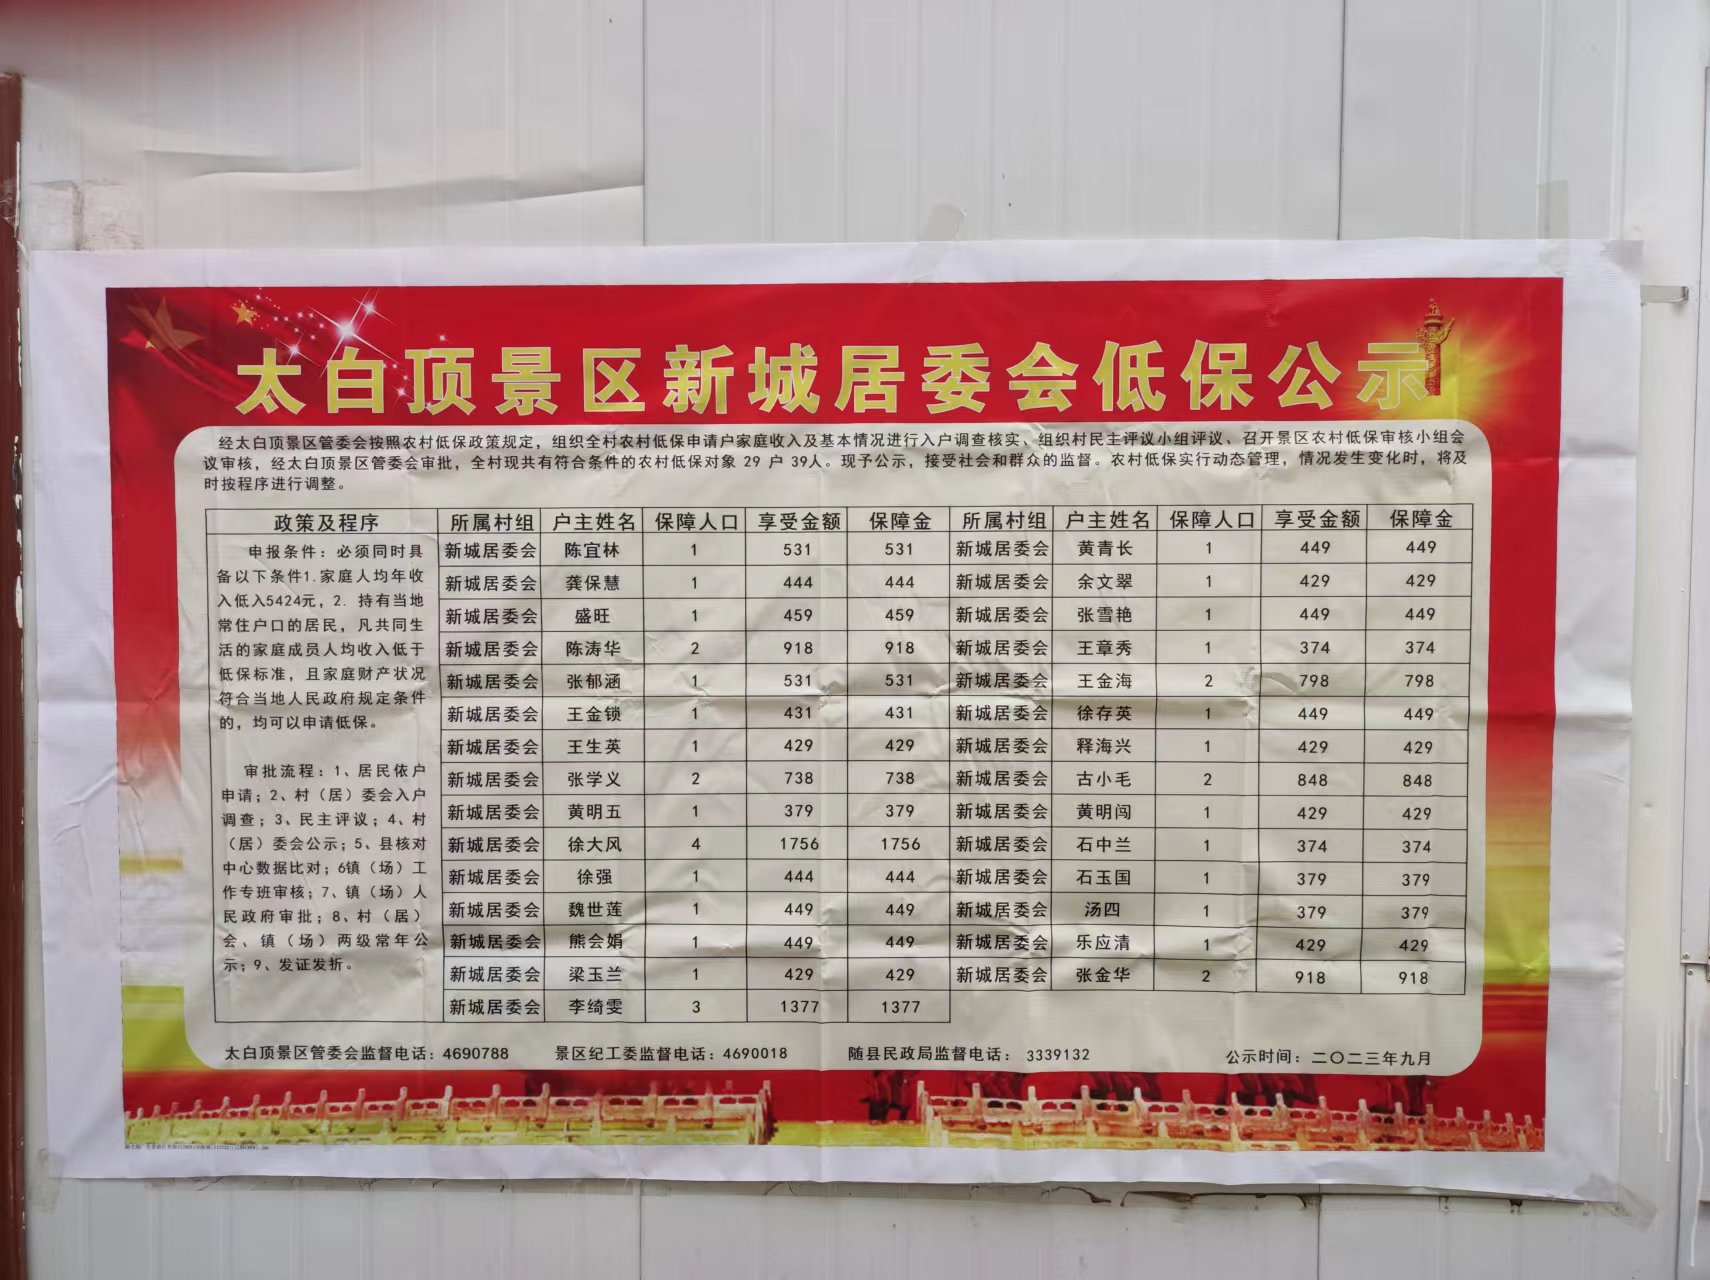 太白顶景区新城居委会低保公示
经太白顶景区管委会按照农村低保政策规定，组织全村农村低保申请户家庭收入及基本情况进行入户调查核实、组织村民主评议小组评议、召开景区农村低保审核小组会
议审核，经太白顶景区管委会审批，全村现共有符合条件的农村低保对象 29 户 39人。现予公示，接受社会和群众的监督。农村低保实行动态管理，情况发生变化时，将及
时按程序进行调整。
政策及程序
申报条件：必须同时具
备以下条件1.家庭人均年收
入低入5424元，2. 持有当地
常住户口的居民，凡共同生
活的家庭成员人均收入低于
低保标准，且家庭财产状况
符合当地人民政府规定条件
的，均可以申请低保。
审批流程：1、居民依户
申请；2、村（居）委会入户
调查；3、民主评议；4、村
（居）委会公示；5、县核对
中心数据比对；6镇（场）工
作专班审核；7、镇（场）人
民政府审批；8、村（居）
会、镇（场）两级常年公
示；9、发证发折。
所属村组 户主姓名 保障人口 享受金额 保障金 所属村组 户主姓名 保障人口 享受金额 保障金
新城居委会 陈宜林 1 531 531 新城居委会 黄青长 1 449 449
新城居委会 龚保慧 1 444 444 新城居委会 余文翠 1 429 429
新城居委会 盛旺 1 459 459 新城居委会 张雪艳 1 449 449
新城居委会 陈涛华 2 918 918 新城居委会 王章秀 1 374 374
新城居委会 张郁涵 1 531 531 新城居委会 王金海 2 798 798
新城居委会 王金锁 1 431 431 新城居委会 徐存英 1 449 449
新城居委会 王生英 1 429 429 新城居委会 释海兴 1 429 429
新城居委会 张学义 2 738 738 新城居委会 古小毛 2 848 848
新城居委会 黄明五 1 379 379 新城居委会 黄明闯 1 429 429
新城居委会 徐大风 4 1756 1756 新城居委会 石中兰 1 374 374
新城居委会 徐强 1 444 444 新城居委会 石玉国 1 379 379
新城居委会 魏世莲 1 449 449 新城居委会 汤四 1 379 379
新城居委会 熊会娟 1 449 449 新城居委会 乐应清 1 429 429
新城居委会 梁玉兰 1 429 429 新城居委会 张金华 2 918 918
新城居委会 李绮雯 3 1377 1377
太白顶景区管委会监督电话：4690788 景区纪工委监督电话：4690018 随县民政局监督电话： 3339132 公示时间：二〇二三年九月